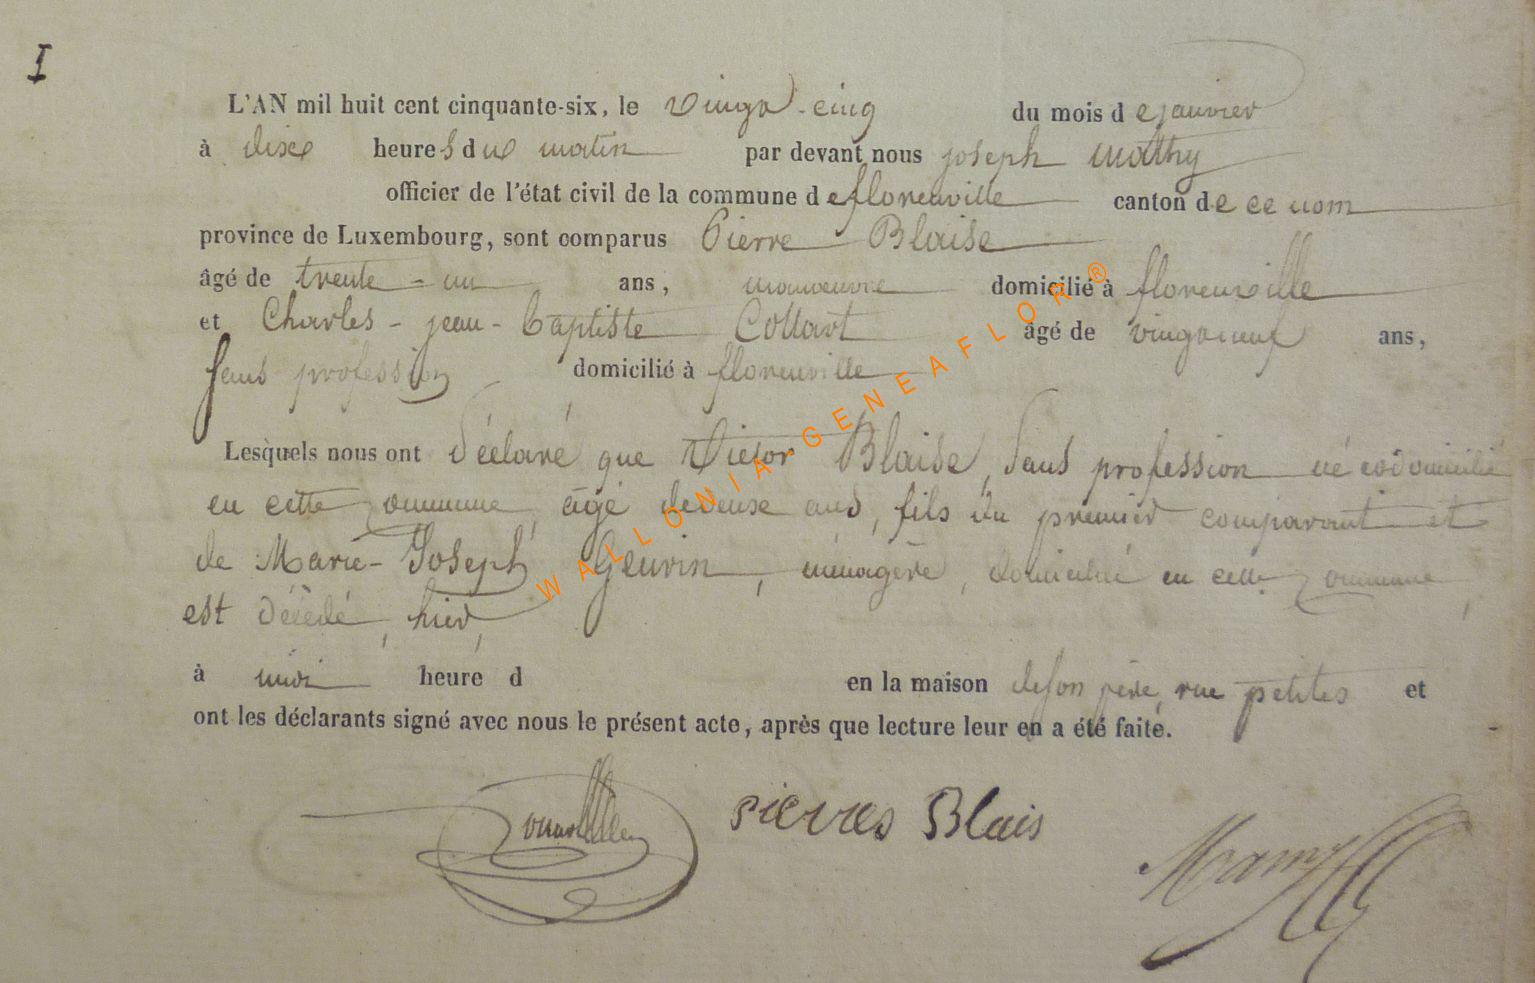 I
L'AN mil huit cent cinquante-six, le vingt-cinq du mois de janvier
à dix heures du matin par devant nous joseph mathy
officier de l'état civil de la commune de florenville canton de ce nom
province de Luxembourg, sont comparus Pierre Blaise
âgé de trente-un ans, manœuvre domicilié à florenville
et Charles-jean-baptiste Collart âgé de vingt neuf ans,
sans profession domicilié à florenville
Lesquels nous ont déclaré que Victor Blaise, sans profession né et domicilié
en cette commune, âgé de deux ans, fils du premier comparant et
de Marie-Joseph Geuvin, ménagère, domiciliée en cette commune,
est décédé, hier,
à midi heure d en la maison de son père, rue petites et
ont les déclarants signé avec nous le présent acte, après que lecture leur en a été faite.
pierres Blais
WALLONIA-GENEAFLOR®